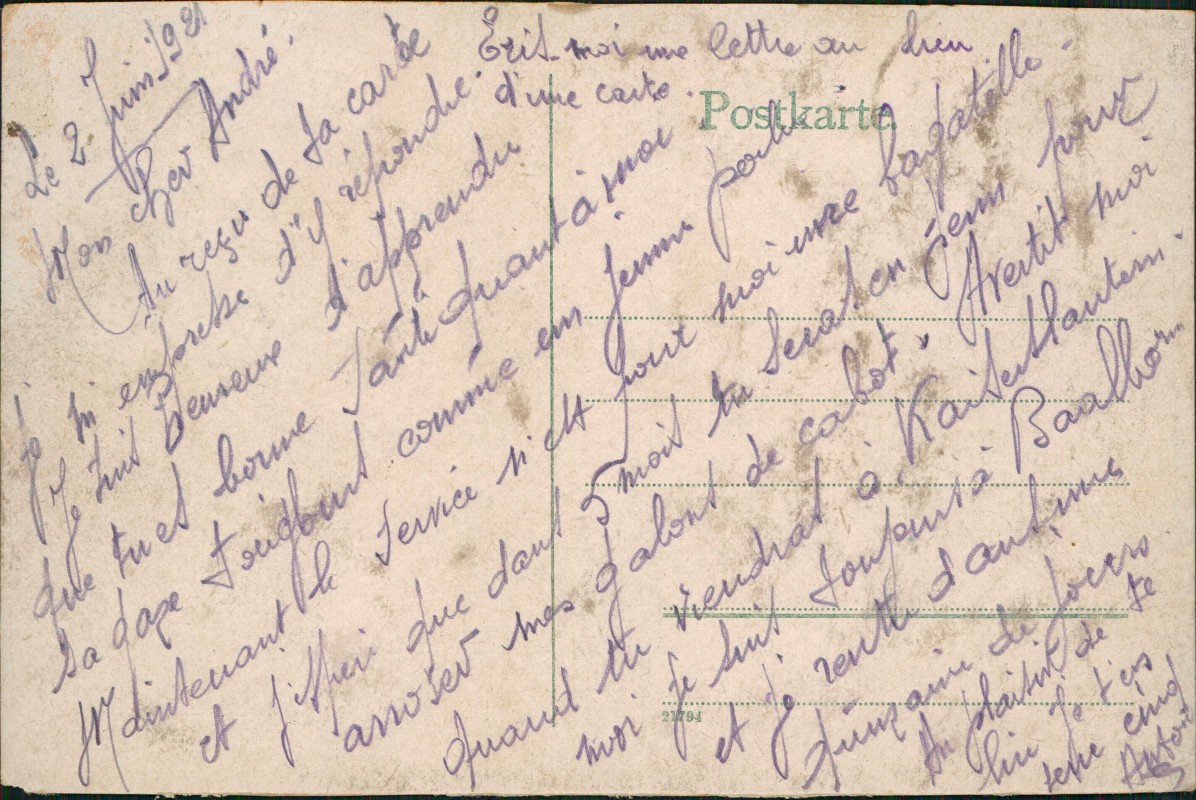 Le 2 Juin 1921
Mon cher André.
Au reçu de ta carte
je m'empresse d'y répondre.
Je suis heureux d'apprendre
que tu es bonne santé quant à moi
sa gaze toujours comme un jeune
Maintenant le service n'est pour moi une bagatelle.
et j'espère que dans 5 mois tu seras en perm pour
arroser mes galons de cabot. Avertis moi
quand tu viendras à Kaiserslautern.
moi je suis toujours à
et je rentre d'une
quinzaine de jours
Au plaisir de te
lire je t'en
serre cinq
Ecris moi une lettre au lieu
d'une carte.
Postkarte.
21794